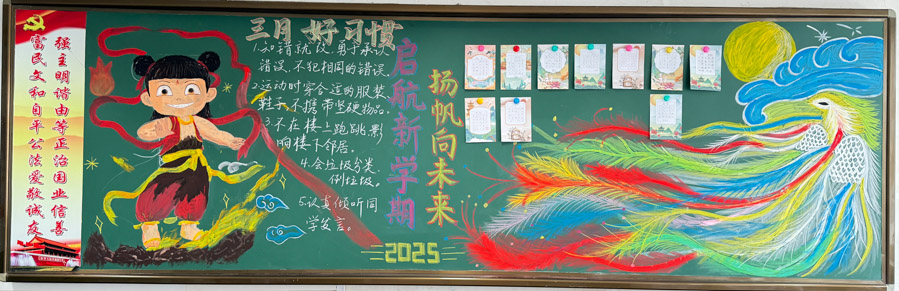 富强
民主
文明
和谐
自由
平等
公正
法治
爱国
敬业
诚信
友善
三月好习惯
1.知错就改,勇于承认
错误,不犯相同的错误。
2.运动时穿合适的服装、
鞋子,不携带坚硬物品。
3.不在楼上跑跳,影
响楼下邻居。
4.会垃圾分类,
倒垃圾。
5.认真倾听同
学发言。
启航新学期
扬帆向未来
2025